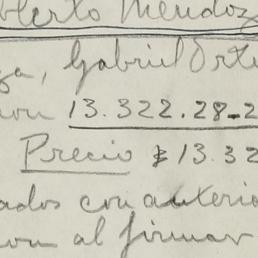 berto Mendoz
za, Gabriel Ortu
on 13.322.28-2
Precio $13.32
ados con anterio
on al firmar